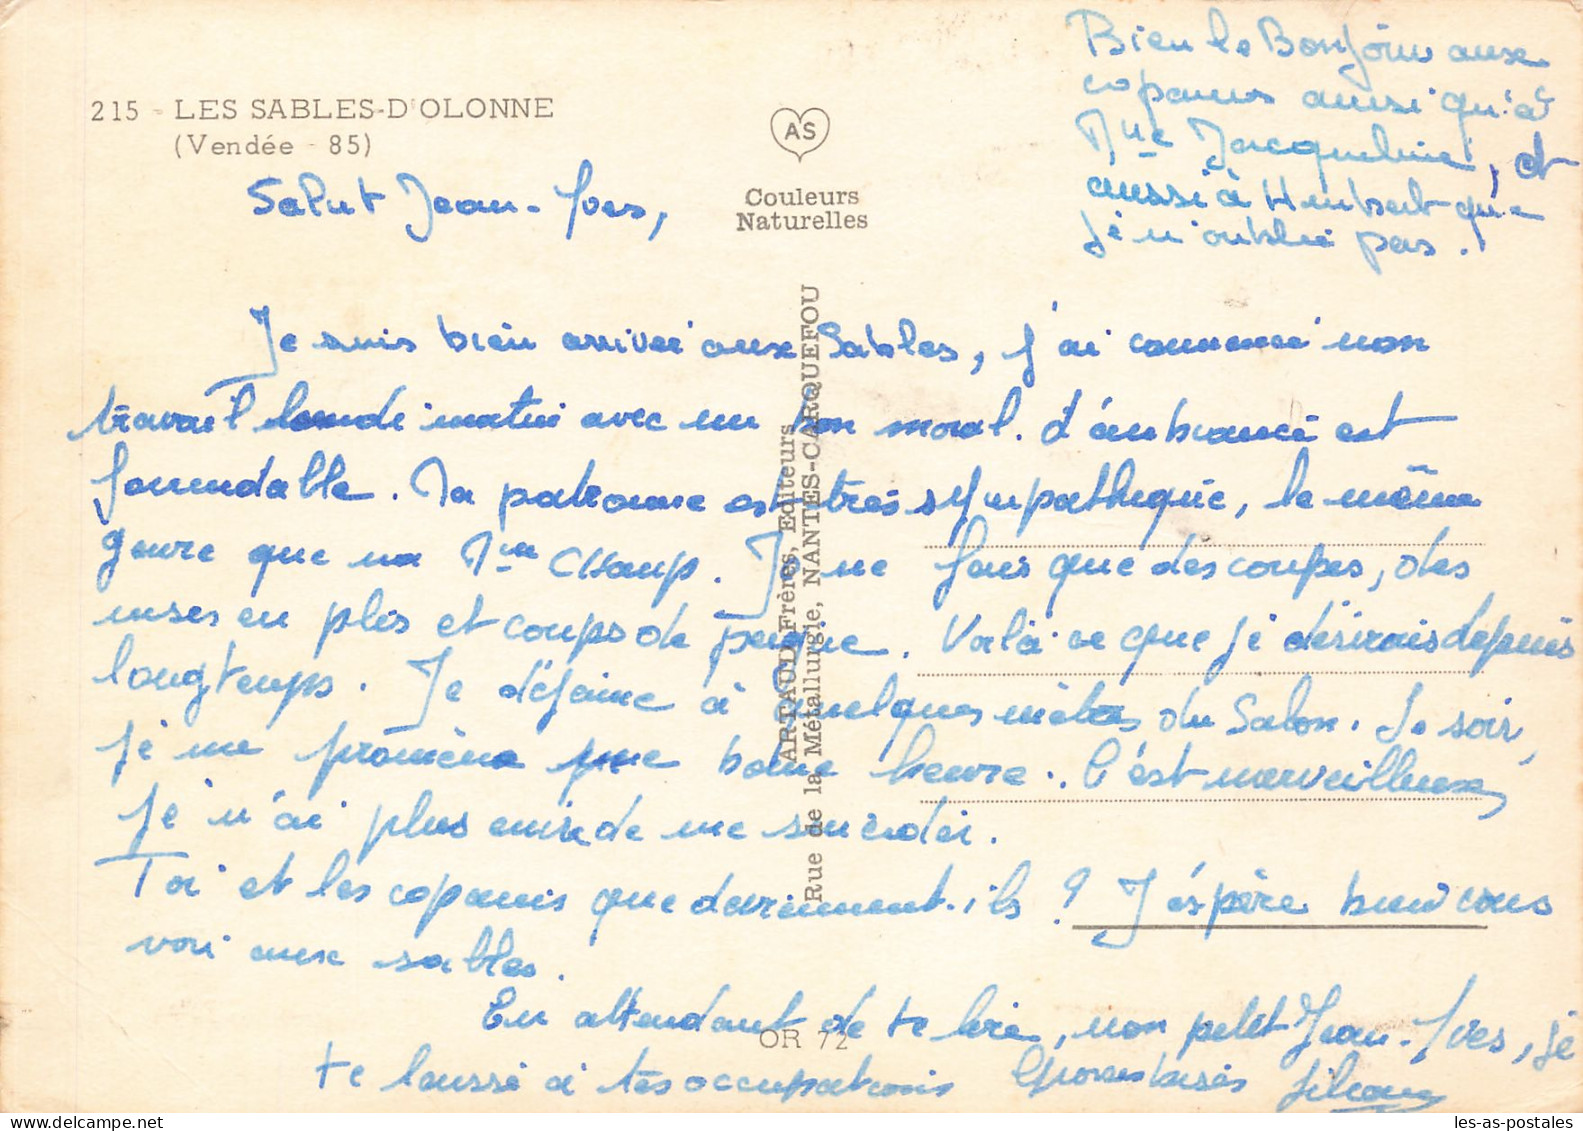 215 - LES SABLES-D'OLONNE
(Vendée - 85)
AS
Couleurs
Naturelles
ARTAUD Frères, Editeurs
Rue de la Métallurgie, NANTES-CARQUEFOU
OR 72
Bien le Bonjour aux
copains ainsi qu'à
Mme Jacqueline, et
aussi à Humbert que
je n'oublie pas.
Salut Jean-Yves,
Je suis bien arrivée aux Sables, j'ai commencé mon
travail lundi matin avec un bon moral. L'ambiance est
formidable. Ma patronne est très sympathique, le même
genre que ma Mme Champ. Je ne fais que des coupes, des
mises en plis et coups de peigne. Voilà ce que je désirais depuis
longtemps. Je déjeune à quelques mètres du Salon. Le soir,
je me promène une bonne heure. C'est merveilleux,
je n'ai plus envie de me suicider.
Toi et les copains que deviennent-ils ? J'espère bien vous
voir aux sables.
En attendant de te lire, mon petit Jean-Yves, je
te laisse à tes occupations
les-as-postales